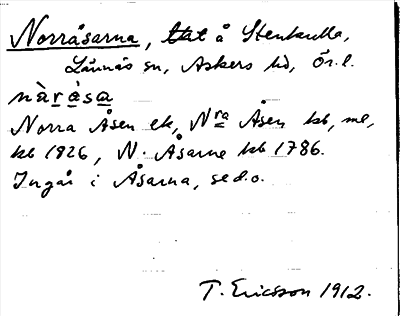 Norråsarna, tbt å Stenkulla,
Lännäs sn, Askers hd, Ör.l.
nòråsa
Norra Åsen ek, Nra Åsen kb, me,
kb 1826, N. Åsarne kb 1786.
Ingår i Åsarna, se d.o.
T. Ericsson 1912.